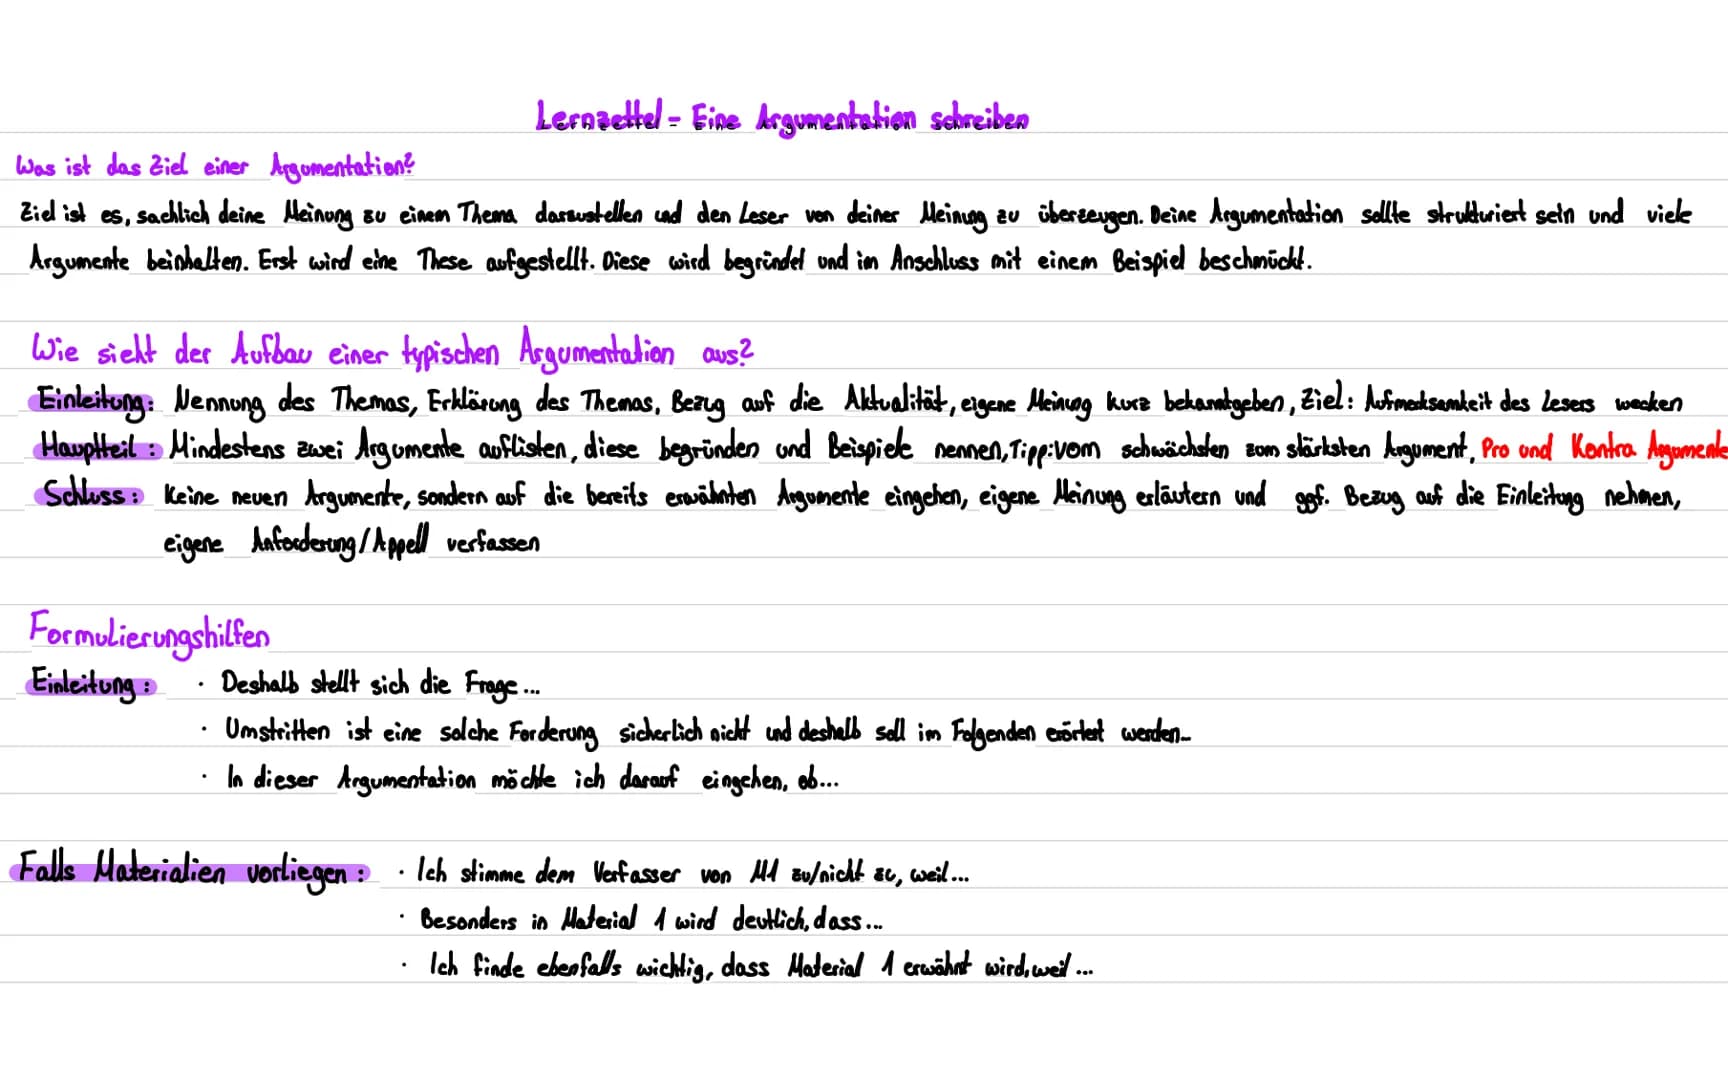 Lernzettel - Eine Argumentation schreiben
Was ist das Ziel einer Argumentation?
Ziel ist es, sachlich deine Meinung zu einem Thema darzustellen und den Leser von deiner Meinung zu überzeugen. Deine Argumentation sollte strukturiert sein und viele
Argumente beinhalten. Erst wird eine These aufgestellt. Diese wird begründet und im Anschluss mit einem Beispiel beschmückt.
Wie sieht der Aufbau einer typischen Argumentation aus?
Einleitung: Nennung des Themas, Erklärung des Themas, Bezug auf die Aktualität, eigene Meinung kurz bekanntgeben, Ziel: Aufmerksamkeit des Lesers wecken
Hauptteil: Mindestens zwei Argumente auflisten, diese begründen und Beispiele nennen, Tipp: vom schwächsten zum stärksten Argument, Pro und Kontra Argumente
Schluss: Keine neuen Argumente, sondern auf die bereits erwähnten Argumente eingehen, eigene Meinung erläutern und ggf. Bezug auf die Einleitung nehmen,
eigene Anforderung/Appell verfassen
Formulierungshilfen
Einleitung: · Deshalb stellt sich die Frage...
· Umstritten ist eine solche Forderung sicherlich nicht und deshalb soll im Folgenden erörtert werden...
· In dieser Argumentation möchte ich darauf eingehen, ob...
Falls Materialien vorliegen: · Ich stimme dem Verfasser von M1 zu/nicht zu, weil...
· Besonders in Material 1 wird deutlich, dass...
· Ich finde ebenfalls wichtig, dass Material 1 erwähnt wird, weil...